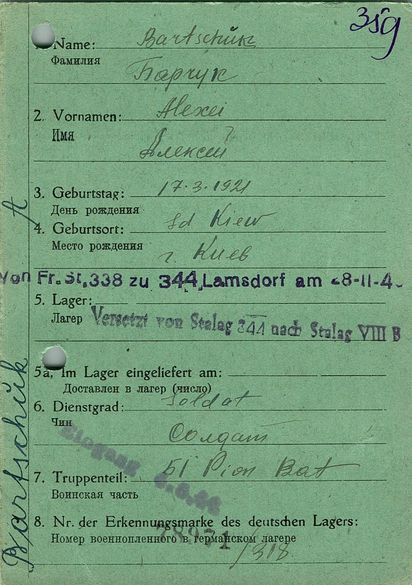 359
Name: Bartschuk
Фамилия
Барчук
2. Vornamen: Alexei
Имя
Алексей
3. Geburtstag: 17.3.1921
День рождения
4. Geburtsort: Kiew
Место рождения г. Киев
Von Fr. St. 338 zu 344 Lamsdorf am 28-11-4
5. Lager:
Лагерь Versetzt von Stalag 344 nach Stalag VIII B
5a. Im Lager eingeliefert am:
Доставлен в лагерь (число)
6. Dienstgrad: Soldat
Чин
Солдат
Eingang
7. Truppenteil: 51 Pion Bat
Воинская часть
8. Nr. der Erkennungsmarke des deutschen Lagers:
Номер военнопленного в германском лагере
/318
Bartschuk A